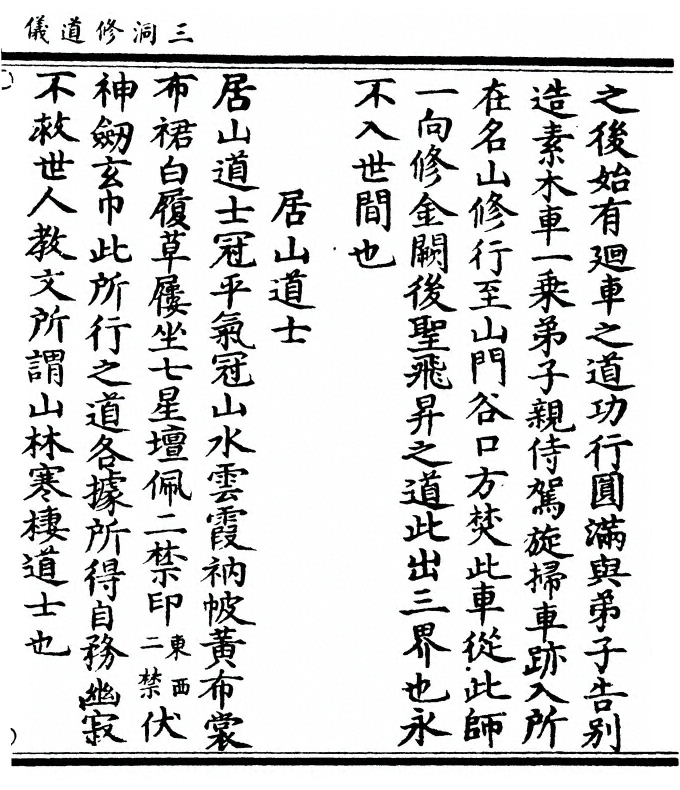 三洞修道儀
之後始有廻車之道功行圓滿與弟子告别
造素木車一乗弟子親侍駕旋掃車跡入所
在名山修行至山門谷口方焚此車從此師
一向修金闕後聖飛昇之道此出三界也永
不入世間也
居山道士
居山道士冠平氣冠山水雲霞衲帔黄布裳
布裙白履草屨坐七星壇佩二禁印東西二禁伏
神劒玄巾此所行之道各據所得自務幽寂
不救世人教文所謂山林寒棲道士也